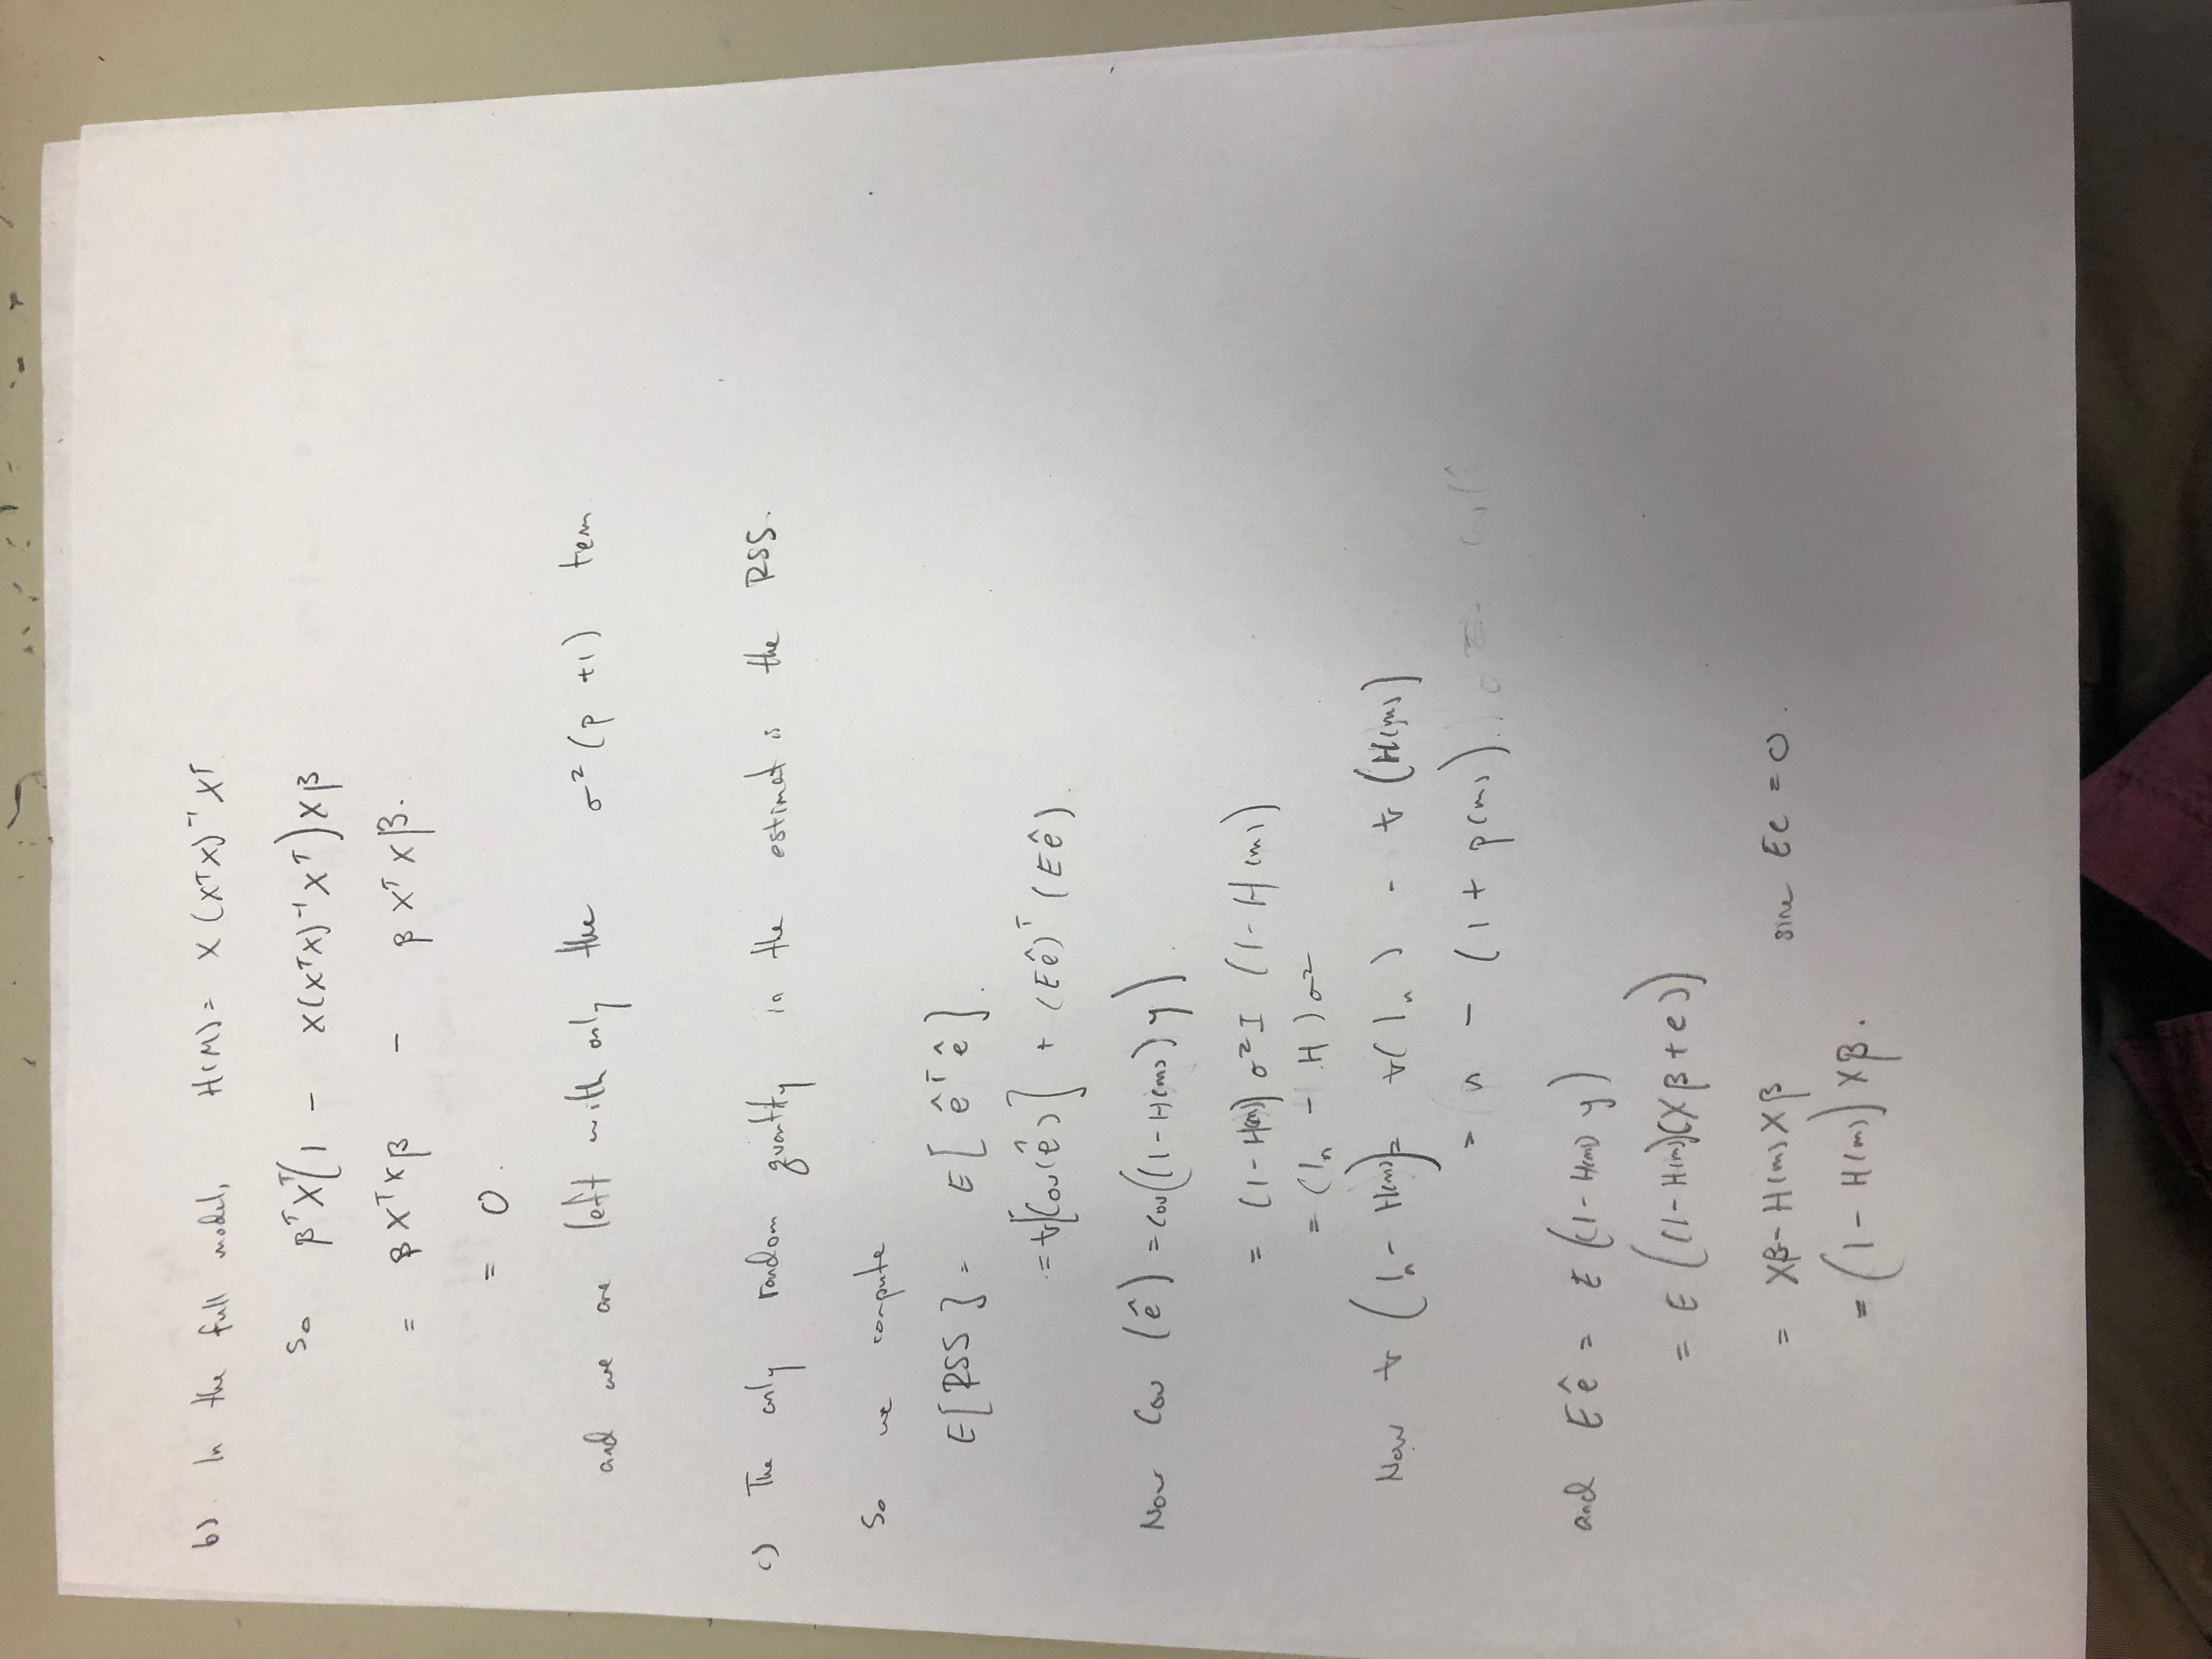 b). In the full model, H(M) = X (XᵀX)⁻¹ Xᵀ
So βᵀXᵀ(1 - X(XᵀX)⁻¹Xᵀ)Xβ
= βXᵀXβ - βXᵀXβ.
= 0.
and we are left with only the σ² (p +1) term
c) The only random quantity in the estimat is the RSS.
So we compute
E[RSS] = E[êᵀê].
= tr[Cov(ê)] + (Eê)ᵀ(Eê).
Now Cov (ê) = Cov((1-H(m))y).
= (1-H(m)) σ²I (1-H(m))
= (1ₙ - H)σ²
Now tr(1ₙ - H(m)) = tr(1ₙ) - tr(H(m))
= n - (1 + p(m)).
and Eê = E((1-H(m)) y)
= E((1-H(m))(Xβ + e))
= Xβ - H(m)Xβ since Ee = 0.
= (1 - H(m)) Xβ.